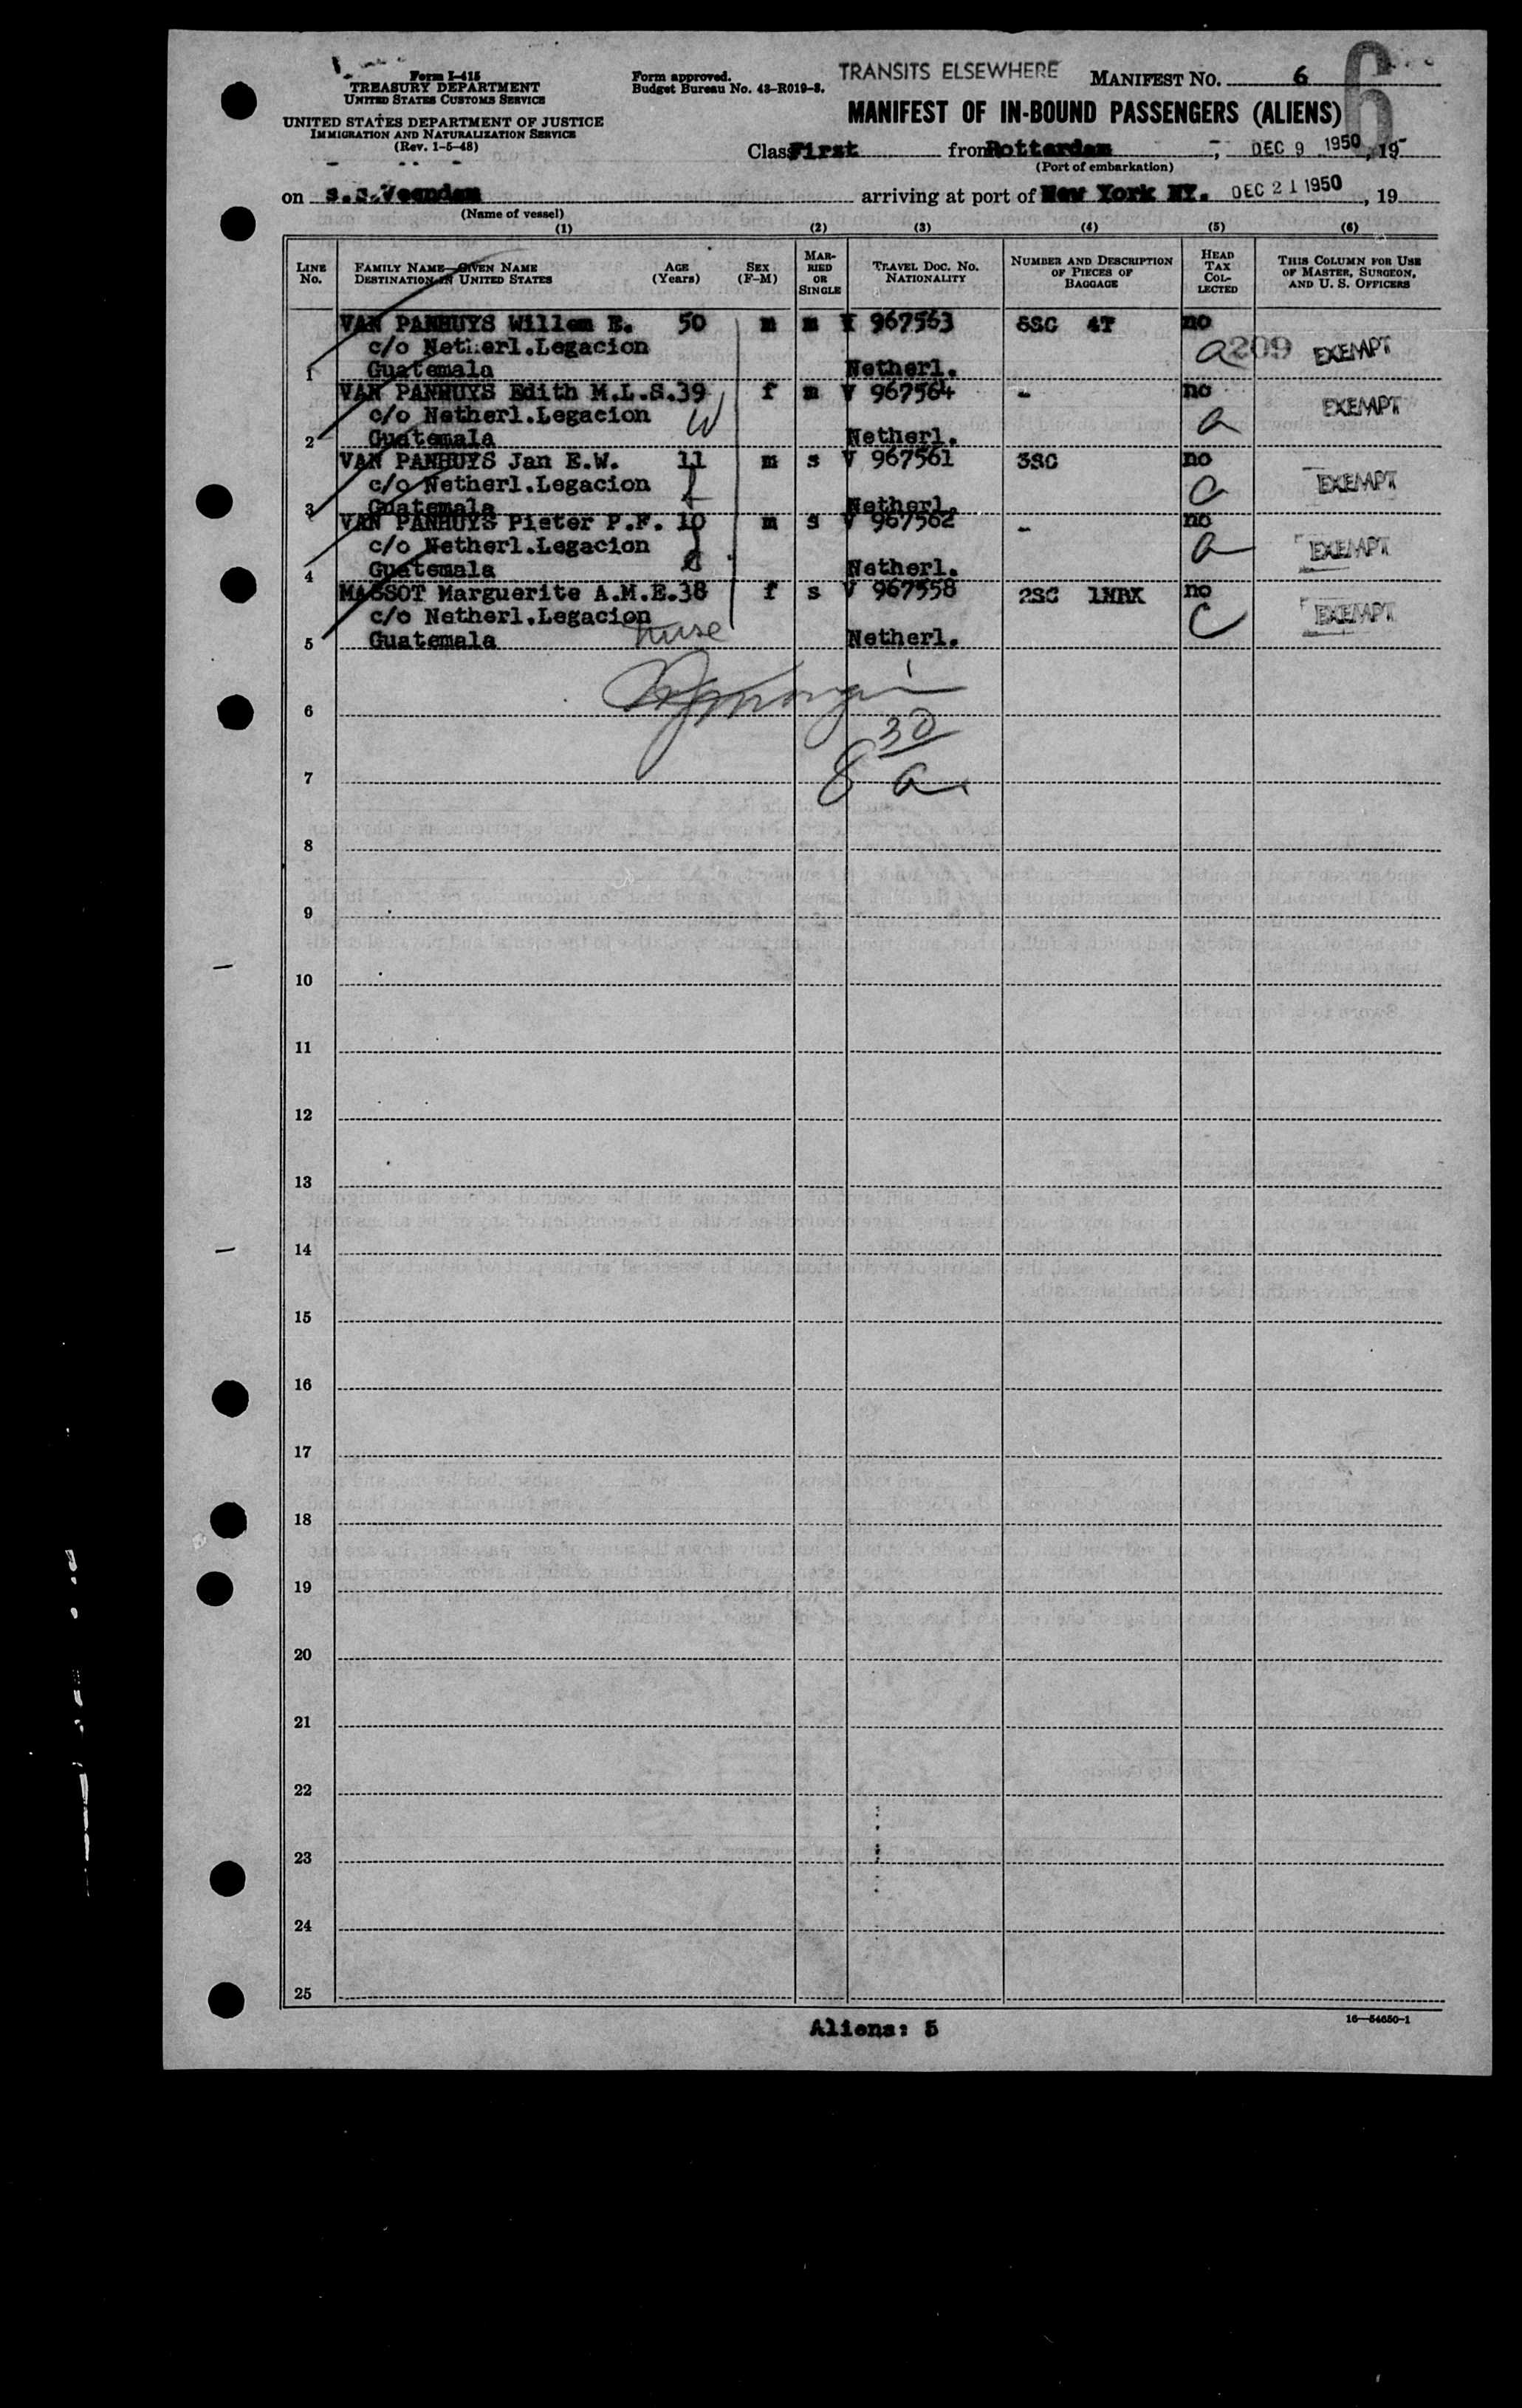 Form I-415
TREASURY DEPARTMENT
UNITED STATES CUSTOMS SERVICE
UNITED STATES DEPARTMENT OF JUSTICE
IMMIGRATION AND NATURALIZATION SERVICE
(Rev. 1-5-48)
Form approved.
Budget Bureau No. 43-R019-3.
TRANSITS ELSEWHERE
MANIFEST NO. 6
6
MANIFEST OF IN-BOUND PASSENGERS (ALIENS)
Class First from Rotterdam, DEC 9 1950, 19
(Port of embarkation)
on s.s.Veendam arriving at port of New York NY. DEC 21 1950, 19
(Name of vessel)
(1) (2) (3) (4) (5) (6)
LINE No. FAMILY NAME—GIVEN NAME DESTINATION IN UNITED STATES AGE (Years) SEX (F-M) MARRIED OR SINGLE TRAVEL DOC. NO. NATIONALITY NUMBER AND DESCRIPTION OF PIECES OF BAGGAGE HEAD TAX COLLECTED THIS COLUMN FOR USE OF MASTER, SURGEON, AND U. S. OFFICERS
VAN PANHUYS Willem E. 50 m m V 967563 6SC 4T no
c/o Netherl.Legacion a 209 EXEMPT
1 Guatemala Netherl.
VAN PANHUYS Edith M.L.S.39 f m V 967564 - no
c/o Netherl.Legacion W a EXEMPT
2 Guatemala Netherl.
VAN PANHUYS Jan E.W. 11 m s V 967561 3SC no
c/o Netherl.Legacion EXEMPT
3 Guatemala Netherl.
VAN PANHUYS Pieter P.F. 10 m s V 967562 - no
c/o Netherl.Legacion a EXEMPT
4 Guatemala Netherl.
MASSOT Marguerite A.M.E.38 f s V 967558 2SC 1HBX no
c/o Netherl.Legacion EXEMPT
5 Guatemala nurse Netherl.
6
8 30 a
7
8
9
10
11
12
13
14
15
16
17
18
19
20
21
22
23
24
25
Aliens: 5
16—54650-1